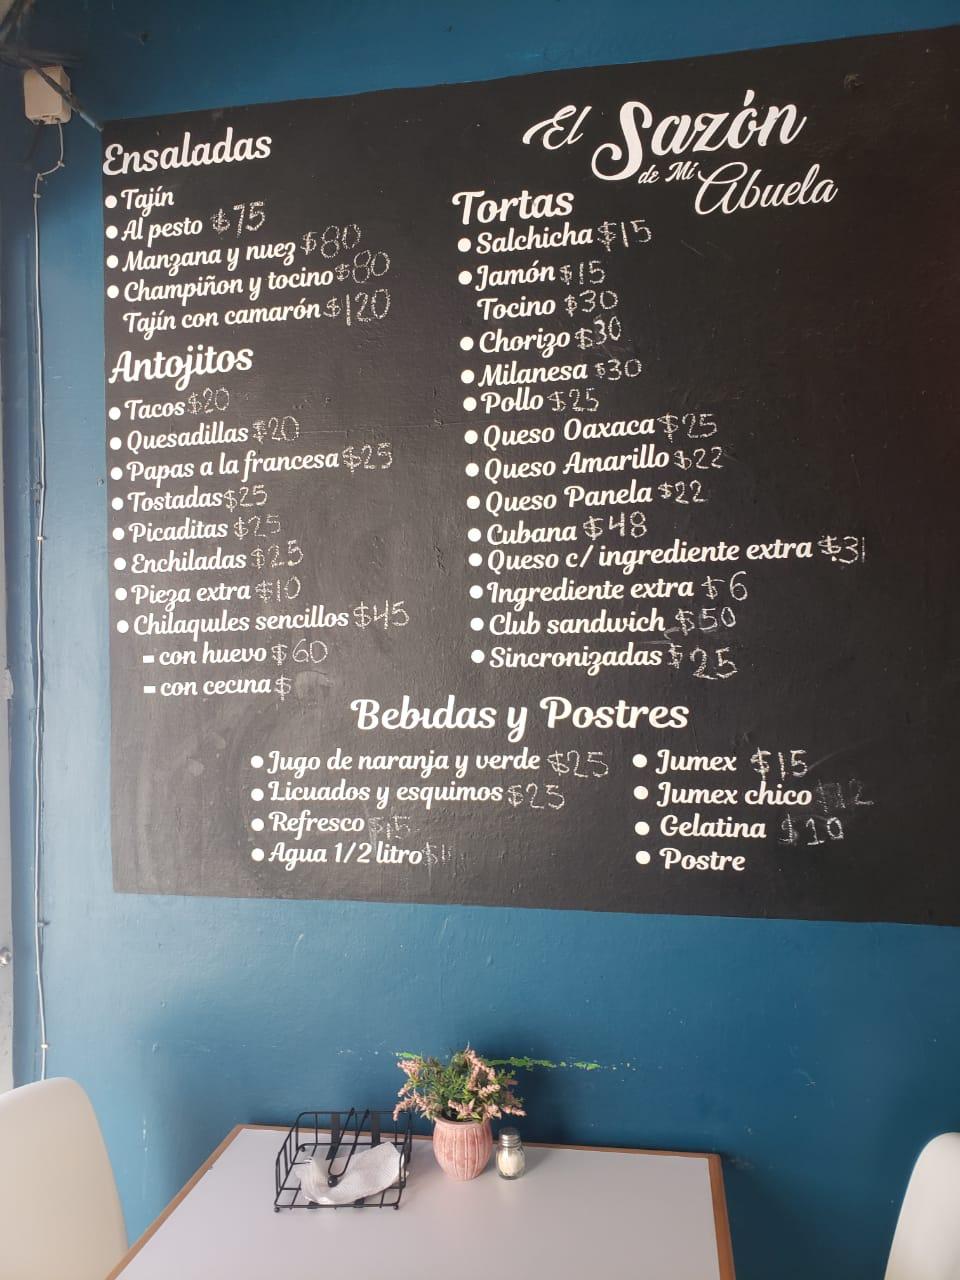 El Sazón
de Mi Abuela
Ensaladas
Tajín
Al pesto $75
Manzana y nuez $80
Champiñon y tocino $80
Tajín con camarón $120
Antojitos
Tacos $20
Quesadillas $20
Papas a la francesa $25
Tostadas $25
Picaditas $25
Enchiladas $25
Pieza extra $10
Chilaquiles sencillos $45
- con huevo $60
- con cecina $
Tortas
Salchicha $15
Jamón $15
Tocino $30
Chorizo $30
Milanesa $30
Pollo $25
Queso Oaxaca $25
Queso Amarillo $22
Queso Panela $22
Cubana $48
Queso c/ ingrediente extra $31
Ingrediente extra $6
Club sandwich $50
Sincronizadas $25
Bebidas y Postres
Jugo de naranja y verde $25
Licuados y esquimos $25
Refresco $15
Agua 1/2 litro
Jumex $15
Jumex chico $12
Gelatina $10
Postre